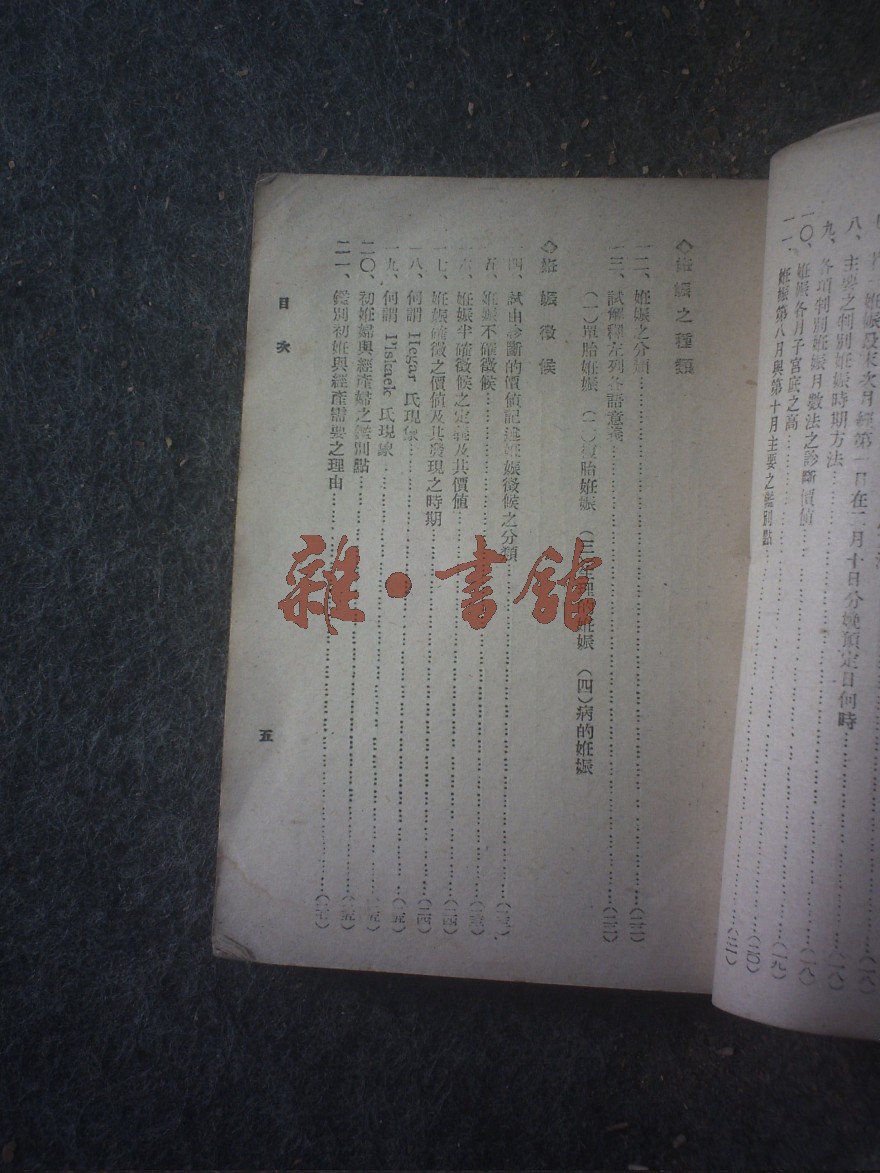 八、主要之判別姙娠時期方法……(一八)
九、各項判別姙娠月數法之診斷價値……(一八)
一〇、姙娠各月子宮底之高……(一九)
一一、姙娠第八月與第十月主要之鑑別點……(二〇)
◇姙娠之種類
一二、姙娠之分類……(二二)
一三、試解釋左列各語意義……(二二)
(一)單胎姙娠 (二)複胎姙娠 (三)生理的姙娠 (四)病的姙娠
◇姙娠徵候
一四、試由診斷的價値記述姙娠徵候之分類……(二三)
一五、姙娠不確徵候……(二三)
一六、姙娠半確徵候之定義及其價値……(二四)
一七、姙娠確徵之價値及其發現之時期……(二四)
一八、何謂 Hegar 氏現象……(二五)
一九、何謂 Piskacek 氏現象……(二五)
二〇、初姙婦與經產婦之鑑別點……(二五)
二一、鑑別初姙與經產需要之理由……(二七)
目次
五
雜·書館